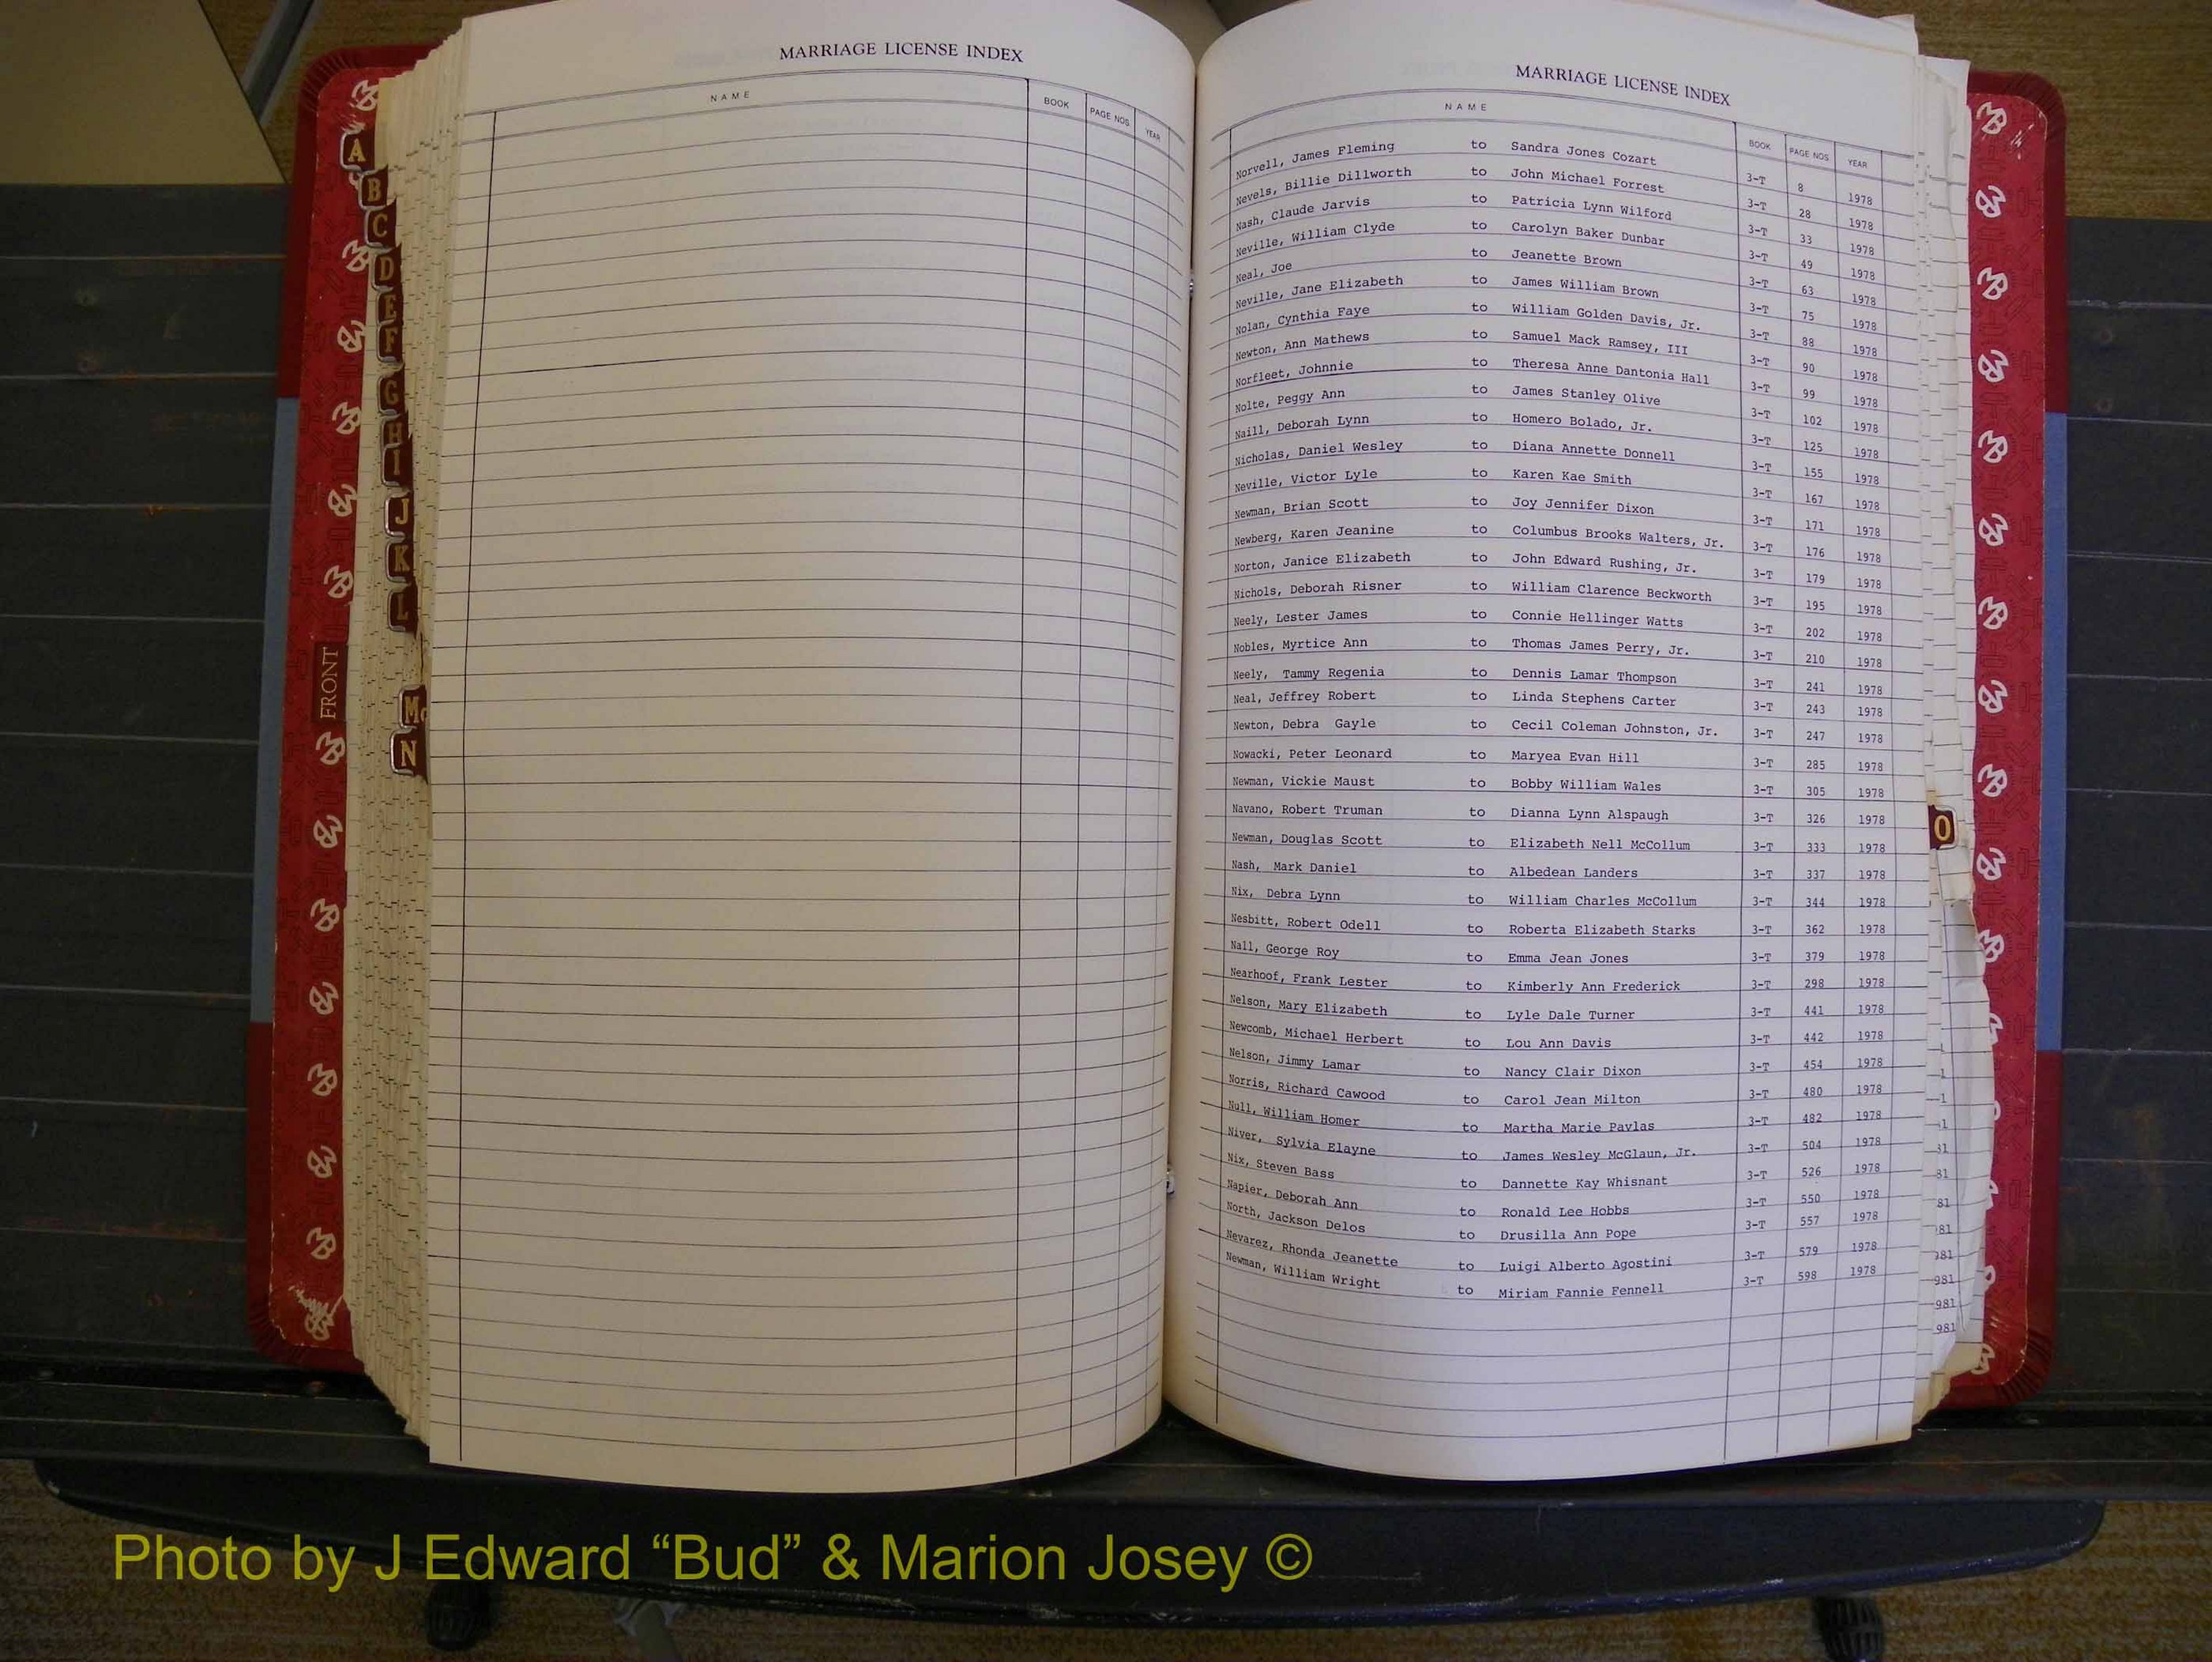 MARRIAGE LICENSE INDEX
NAME BOOK PAGE NOS YEAR
A
B
C
D
E
F
G
H
I
J
K
L
FRONT
Mc
N
MARRIAGE LICENSE INDEX
NAME BOOK PAGE NOS YEAR
Norvell, James Fleming to Sandra Jones Cozart 3-T 8 1978
Nevels, Billie Dillworth to John Michael Forrest 3-T 28 1978
Nash, Claude Jarvis to Patricia Lynn Wilford 3-T 33 1978
Neville, William Clyde to Carolyn Baker Dunbar 3-T 49 1978
Neal, Joe to Jeanette Brown 3-T 63 1978
Neville, Jane Elizabeth to James William Brown 3-T 75 1978
Nolan, Cynthia Faye to William Golden Davis, Jr. 3-T 88 1978
Newton, Ann Mathews to Samuel Mack Ramsey, III 3-T 90 1978
Norfleet, Johnnie to Theresa Anne Dantonia Hall 3-T 99 1978
Nolte, Peggy Ann to James Stanley Olive 3-T 102 1978
Naill, Deborah Lynn to Homero Bolado, Jr. 3-T 125 1978
Nicholas, Daniel Wesley to Diana Annette Donnell 3-T 155 1978
Neville, Victor Lyle to Karen Kae Smith 3-T 167 1978
Newman, Brian Scott to Joy Jennifer Dixon 3-T 171 1978
Newberg, Karen Jeanine to Columbus Brooks Walters, Jr. 3-T 176 1978
Norton, Janice Elizabeth to John Edward Rushing, Jr. 3-T 179 1978
Nichols, Deborah Risner to William Clarence Beckworth 3-T 195 1978
Neely, Lester James to Connie Hellinger Watts 3-T 202 1978
Nobles, Myrtice Ann to Thomas James Perry, Jr. 3-T 210 1978
Neely, Tammy Regenia to Dennis Lamar Thompson 3-T 241 1978
Neal, Jeffrey Robert to Linda Stephens Carter 3-T 243 1978
Newton, Debra Gayle to Cecil Coleman Johnston, Jr. 3-T 247 1978
Nowacki, Peter Leonard to Maryea Evan Hill 3-T 285 1978
Newman, Vickie Maust to Bobby William Wales 3-T 305 1978
Navano, Robert Truman to Dianna Lynn Alspaugh 3-T 326 1978
Newman, Douglas Scott to Elizabeth Nell McCollum 3-T 333 1978
Nash, Mark Daniel to Albedean Landers 3-T 337 1978
Nix, Debra Lynn to William Charles McCollum 3-T 344 1978
Nesbitt, Robert Odell to Roberta Elizabeth Starks 3-T 362 1978
Nall, George Roy to Emma Jean Jones 3-T 379 1978
Nearhoof, Frank Lester to Kimberly Ann Frederick 3-T 298 1978
Nelson, Mary Elizabeth to Lyle Dale Turner 3-T 441 1978
Newcomb, Michael Herbert to Lou Ann Davis 3-T 442 1978
Nelson, Jimmy Lamar to Nancy Clair Dixon 3-T 454 1978
Norris, Richard Cawood to Carol Jean Milton 3-T 480 1978
Null, William Homer to Martha Marie Pavlas 3-T 482 1978
Niver, Sylvia Elayne to James Wesley McGlaun, Jr. 3-T 504 1978
Nix, Steven Bass to Dannette Kay Whisnant 3-T 526 1978
Napier, Deborah Ann to Ronald Lee Hobbs 3-T 550 1978
North, Jackson Delos to Drusilla Ann Pope 3-T 557 1978
Nevarez, Rhonda Jeanette to Luigi Alberto Agostini 3-T 579 1978
Newman, William Wright to Miriam Fannie Fennell 3-T 598 1978
O
81
81
81
981
981
981
Photo by J Edward “Bud” & Marion Josey ©